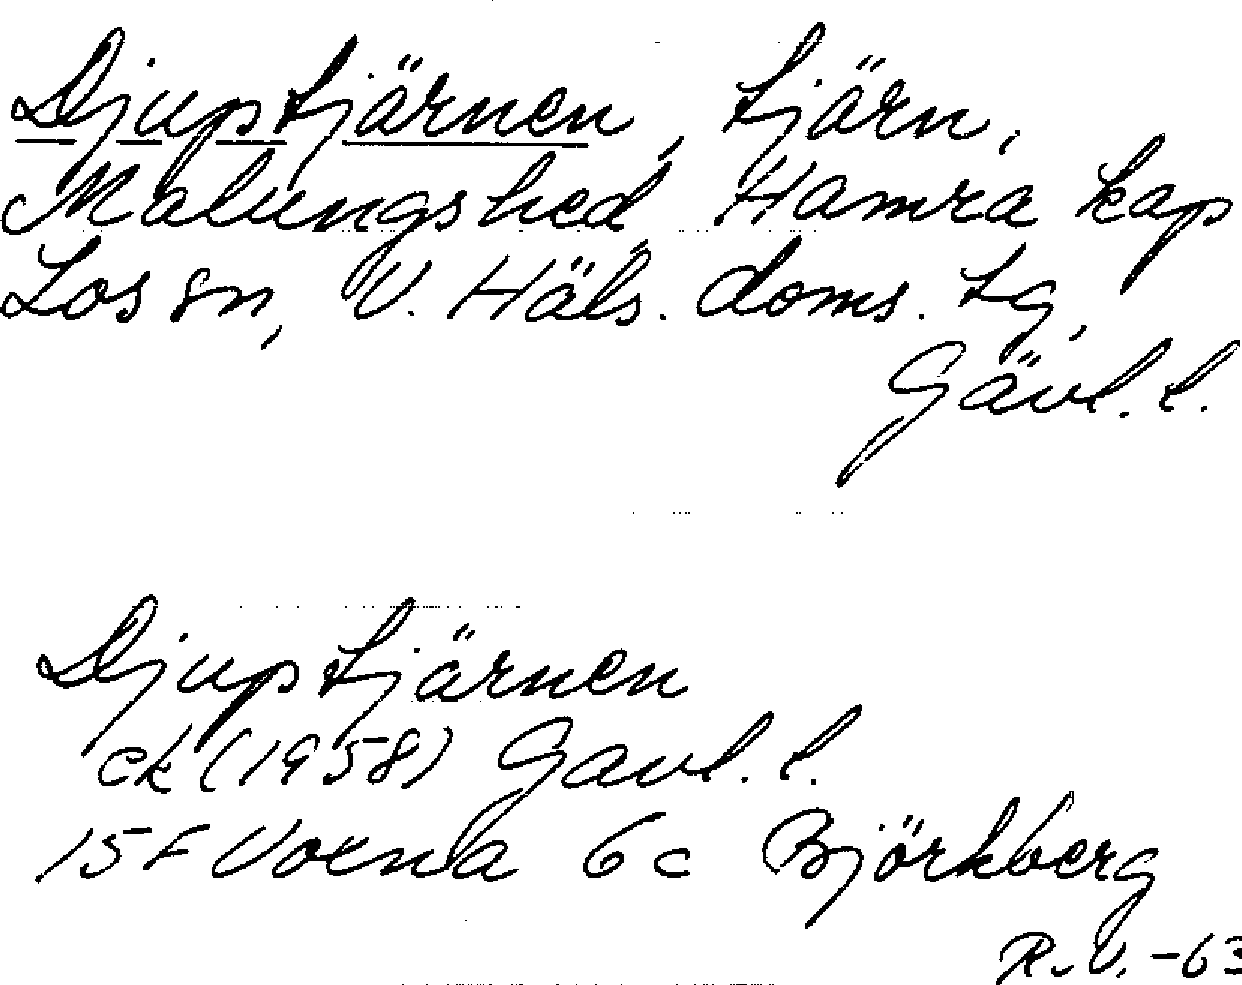 Djuptjärnen, tjärn,
Malungshed Hamra kap
Los sn, V. Häls. doms. tg,
Gävl. l.
Djuptjärnen
ek (1958) Gävl. l.
15F Voxna 6c Björkberg
R.V. -63